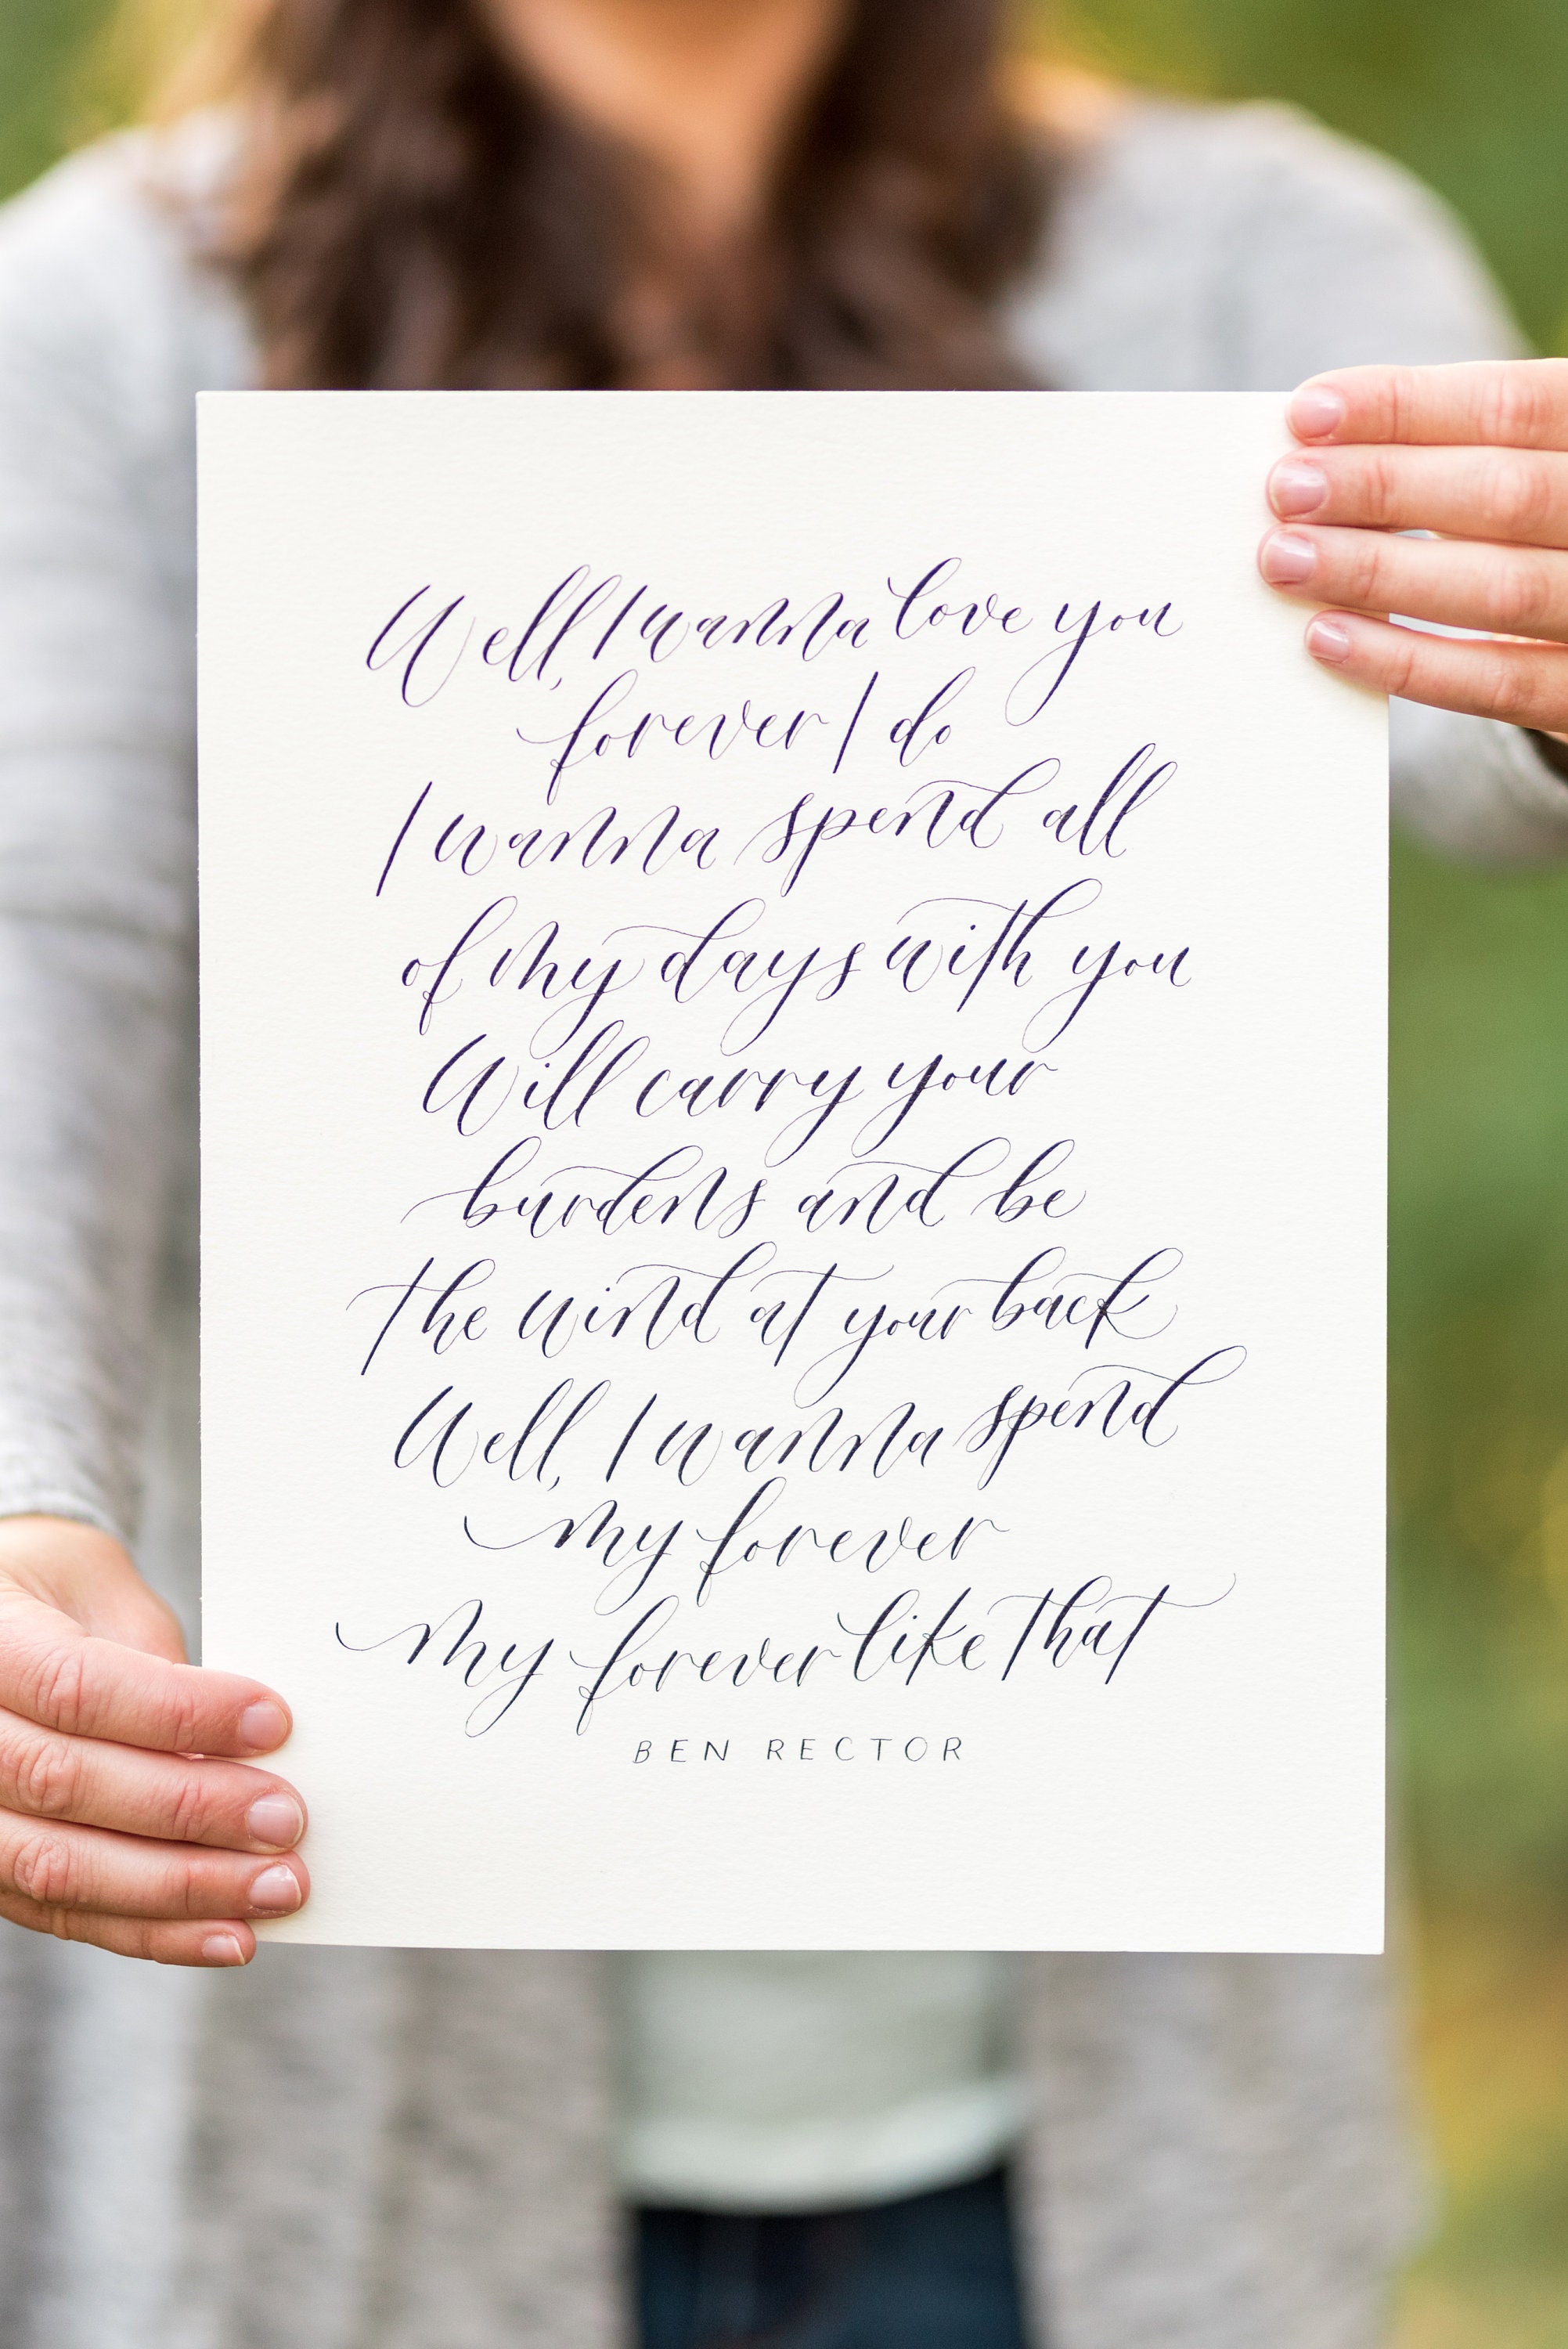 Well, I wanna love you
forever I do
I wanna spend all
of my days with you
Will carry your
burdens and be
the wind at your back
Well, I wanna spend
my forever
My forever like that
BEN RECTOR